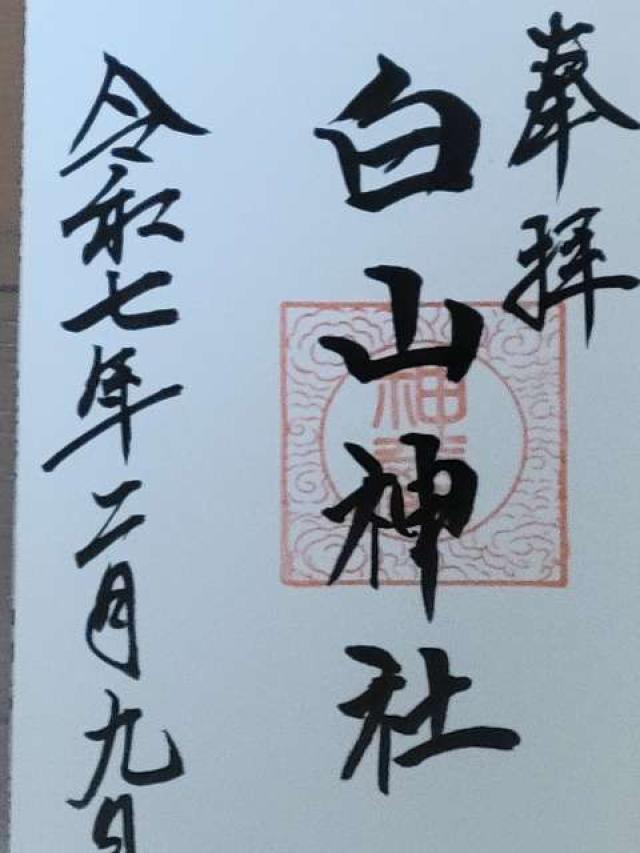 奉拝
白山神社
令和七年二月九日